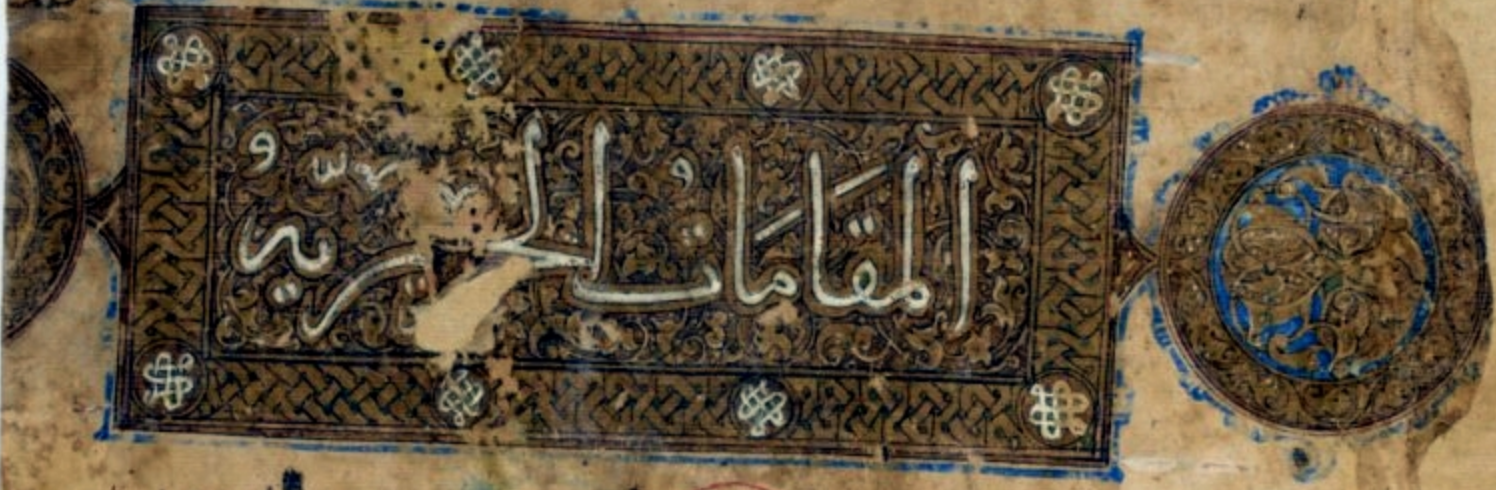 المَقَامَاتُ الحَرِيرِيَّةُ